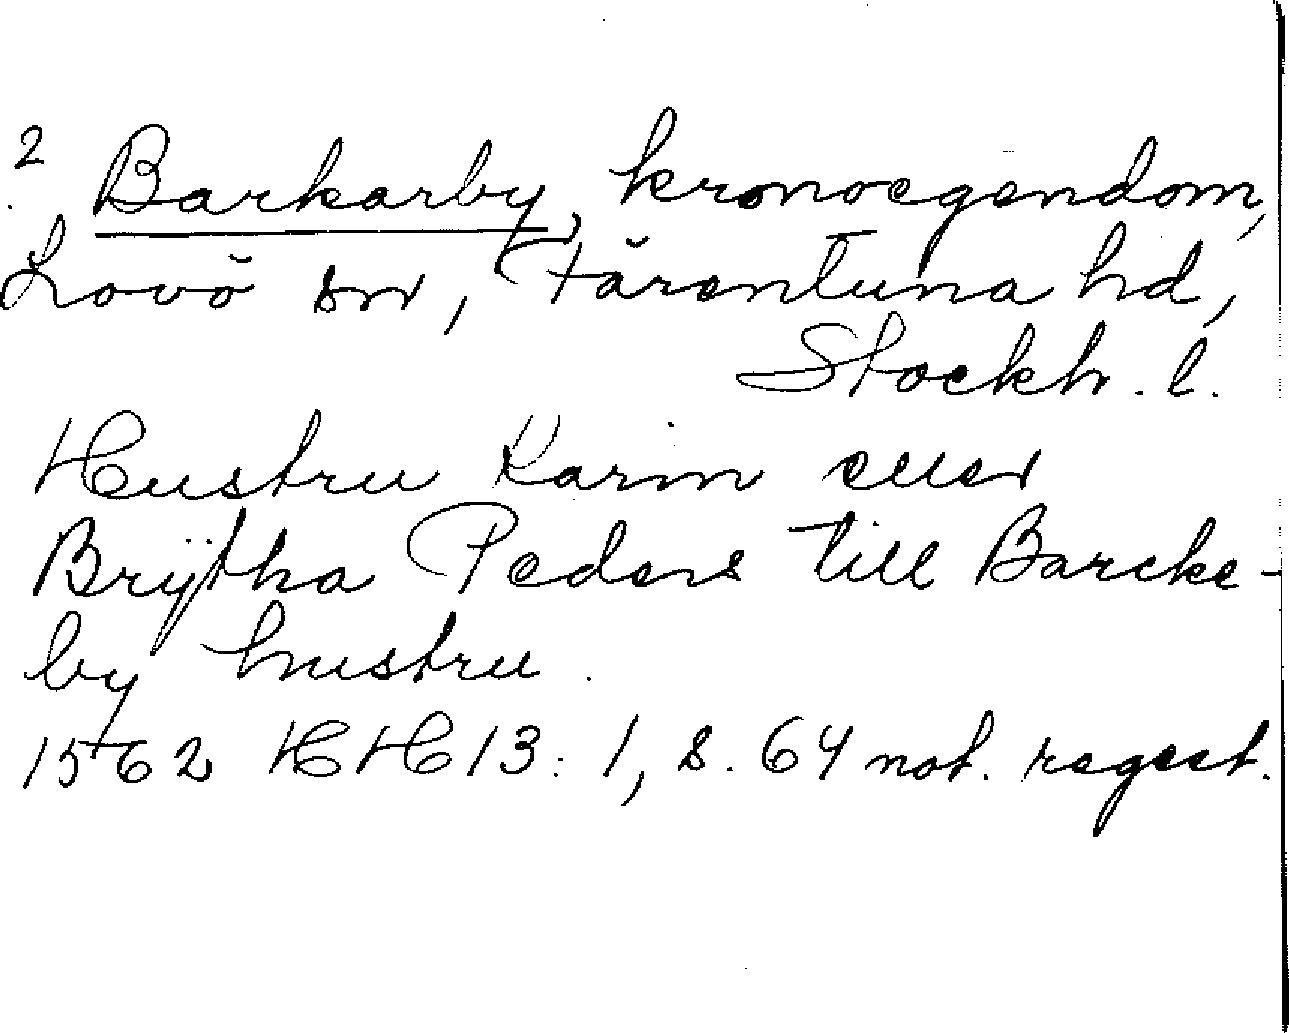 2
Barkarby, kronoegendom,
Lovö sn, Färentuna hd,
Stockh. l.
Hustru Karin eller
Brÿtha Peders till Barcke-
by hustru.
1562 HH 13: 1, s. 64 not. regest.